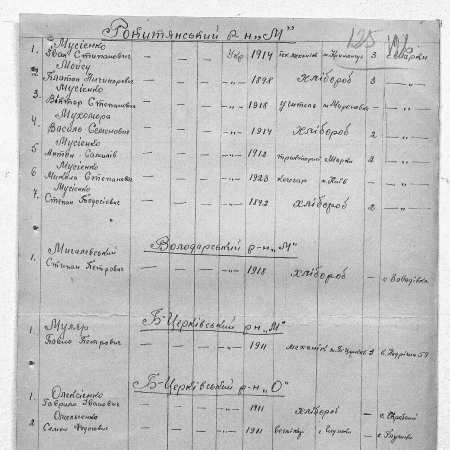 Рокитянський р-н „М"
125
1. Мусієнко
Іван Степанович — — — Укр 1914 3 с. Шарки
2 Мойсу
Платон Никифорович — — — „ 1898 хлібороб 3 „
3. Мусієнко
Віктор Степанович — — — „ 1918 учитель „
4. Мухомора
Василь Семенович — — — „ 1914 хлібороб 2 „
5 Мусієнко
Антон — — — „ 1912 тракторист Шарки 2 „
6 Мусієнко
Микола Степанович — — — „ 1923 кочегар м. Київ
7. Мусієнко
Степан Тодосієвич — — — „ 1892 хлібороб 2 „
Володарський р-н „М"
1. Мигалевський
Степан Петрович — — — „ 1918 хлібороб — с. Завадівка
Б-Церківський р-н „М"
1. Муляр
Павло Петрович — — — „ 1911 механік
Б-Церківський р-н „О"
1. Олексієнко
Гаврило Іванович — — — „ 1911 хлібороб —
2 Омельяненко
Семен Федосович — — — „ 1911 —